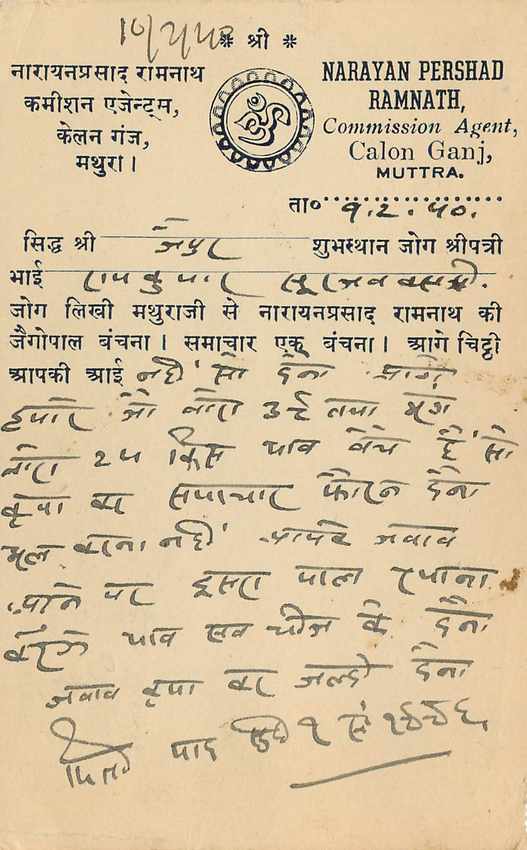 * श्री *
नारायनप्रसाद रामनाथ
कमीशन एजेन्ट्स,
केलन गंज,
मथुरा।
NARAYAN PERSHAD
RAMNATH,
Commission Agent,
Calon Ganj,
MUTTRA.
ता० ९.२.५०.
सिद्ध श्री जैपुर शुभस्थान जोग श्रीपत्री
भाई रामकुमार सूरजबक्सजी.
जोग लिखी मथुराजी से नारायनप्रसाद रामनाथ की
जैगोपाल बंचना। समाचार एक बंचना। आगे चिट्टी
आपकी आई नहीं सो देना आगे
हमारे जो बोरा उर्द तथा मूंग
बोरा २५ किस भाव बेचे हैं सो
कृपा कर समाचार फौरन देना
भूल करना नहीं आपके जवाब
आने पर दूसरा माल रवाना
करेंगे भाव सब चीज के देना
जवाब कृपा कर जल्दी देना
मिती माह सुदी